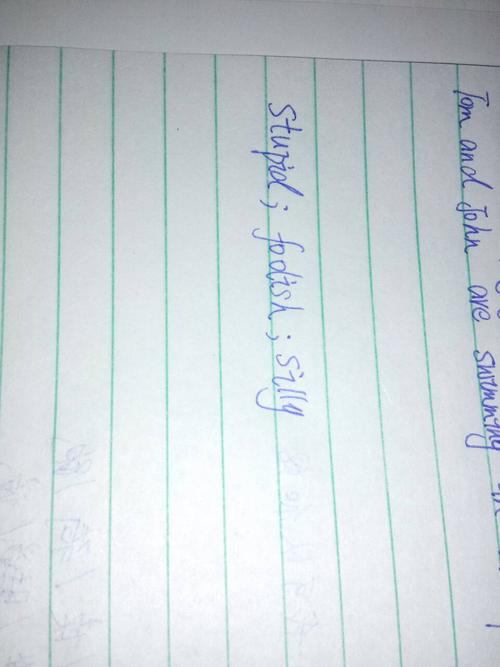 Tom and John are swimming
Stupid; foolish; silly